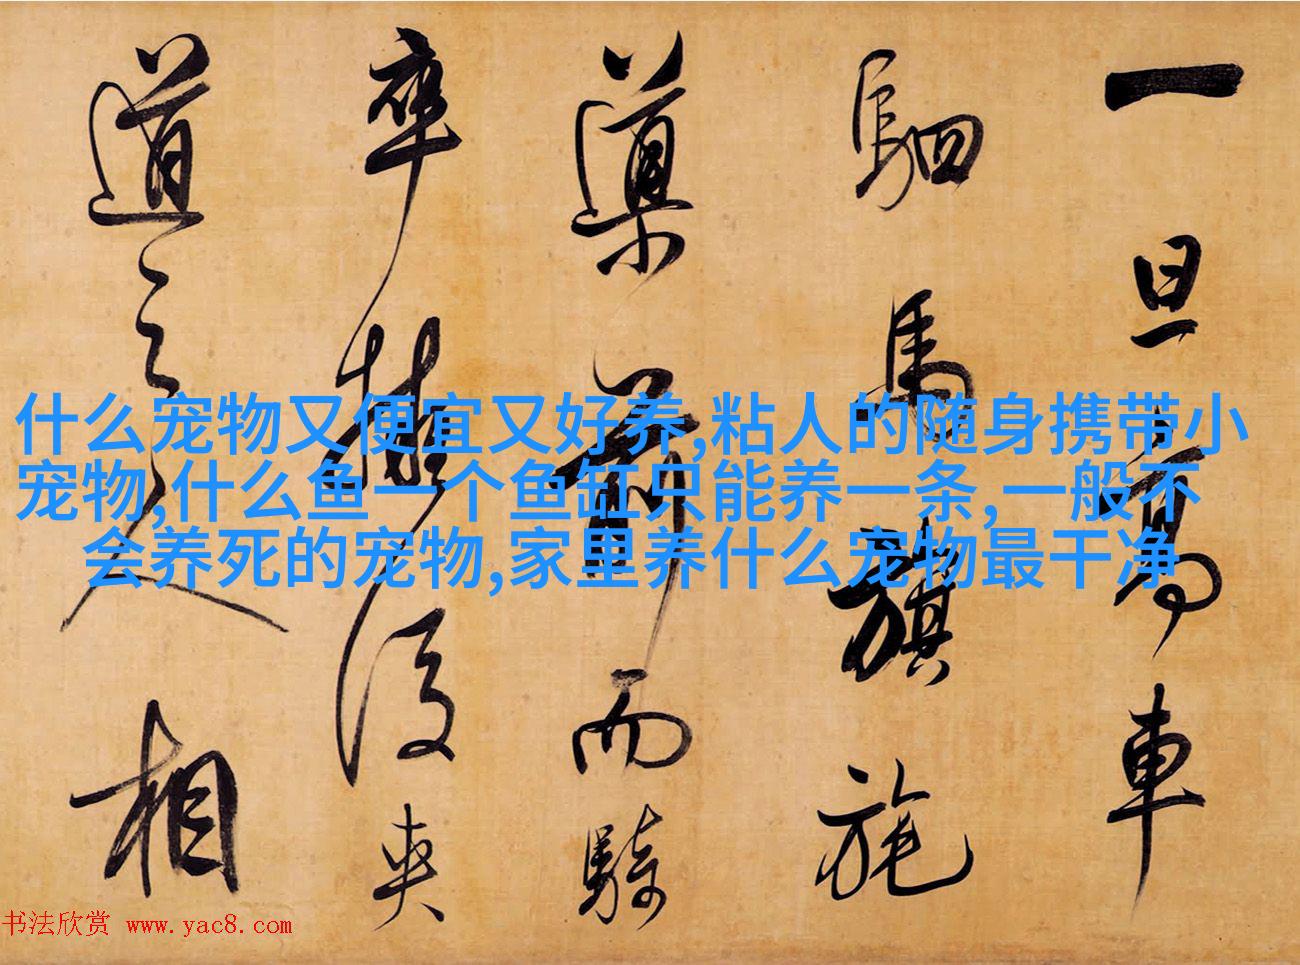 一旦高車
駟馬旗旄
導前而騎
卒擁後夾
道之人相
什么宠物又便宜又好养,粘人的随身携带小
宠物,什么鱼一个鱼缸只能养一条,一般不
会养死的宠物,家里养什么宠物最干净
书法欣赏 www.yac8.com